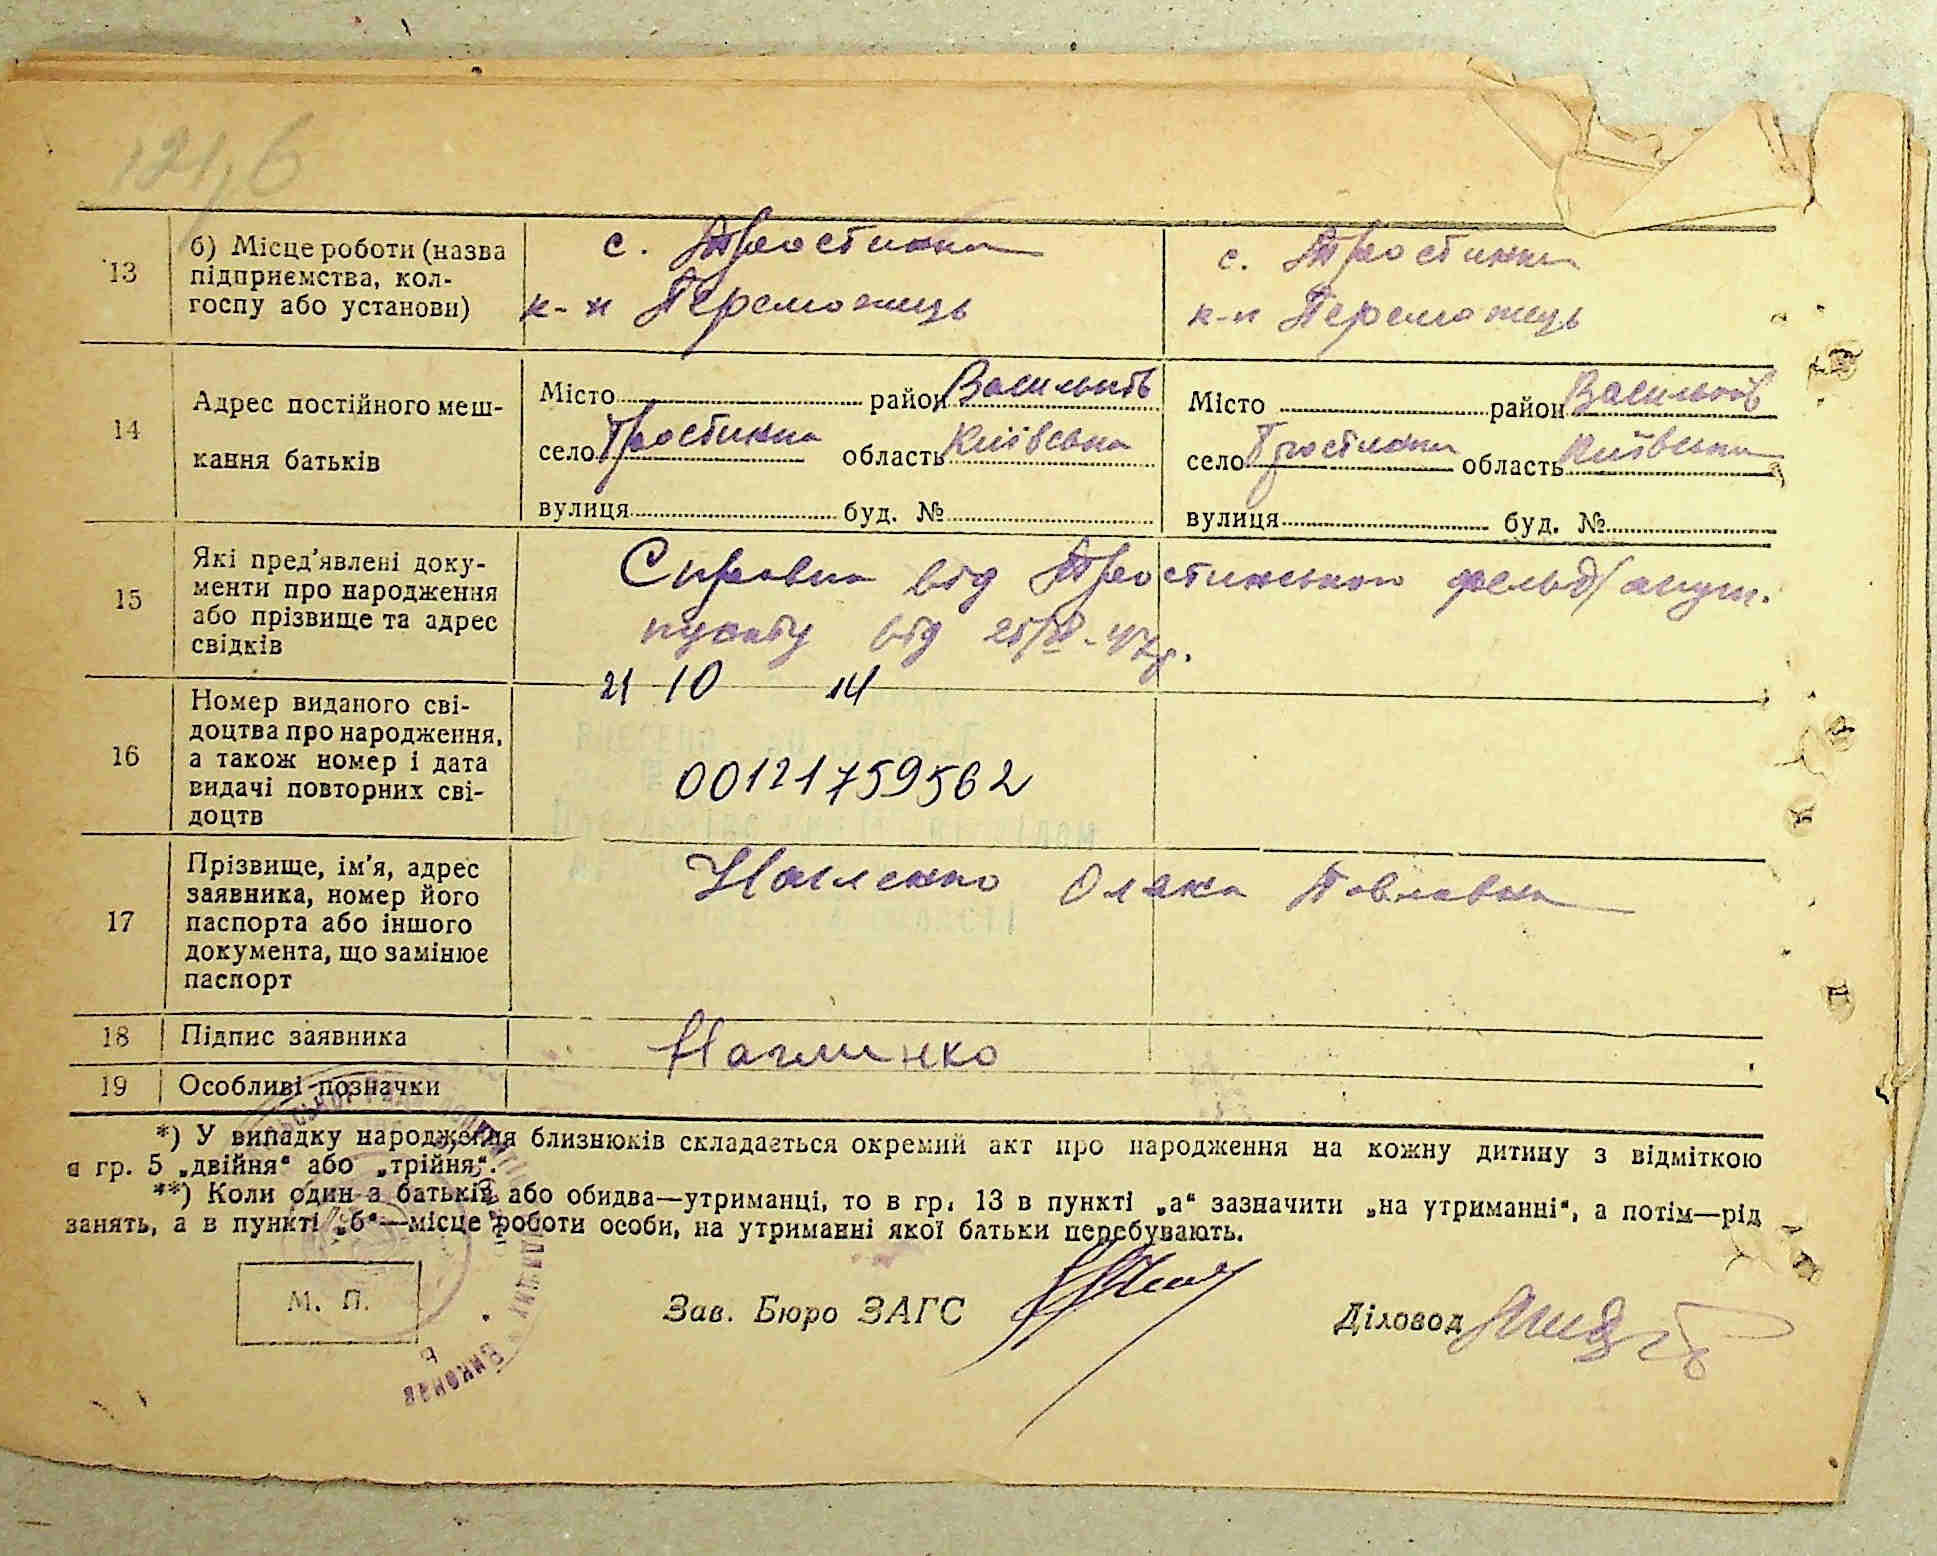 121,б
13 б) Місце роботи (назва підприємства, колгоспу або установи)
с. Тростинка
к-п Переможець
с. Тростинка
к-п Переможець
14 Адрес постійного мешкання батьків
Місто район Васильків
село Тростинка область Київська
вулиця буд. №
Місто район Васильків
село Тростинка область Київська
вулиця буд. №
15 Які пред'явлені документи про народження або прізвище та адрес свідків
Справка від Тростинського фельд/акуш.
пункту від
16 Номер виданого свідоцтва про народження, а також номер і дата видачі повторних свідоцтв
21 10 14
00121759562
17 Прізвище, ім'я, адрес заявника, номер його паспорта або іншого документа, що замінює паспорт
Олена Павлівна
18 Підпис заявника
19 Особливі позначки
*) У випадку народження близнюків складається окремий акт про народження на кожну дитину з відміткою
в гр. 5 „двійня“ або „трійня“.
**) Коли один з батьків або обидва—утриманці, то в гр. 13 в пункті „а“ зазначити „на утриманні“, а потім—рід
занять, а в пункті „б“—місце роботи особи, на утриманні якої батьки перебувають.
М. П.
Зав. Бюро ЗАГС
Діловод